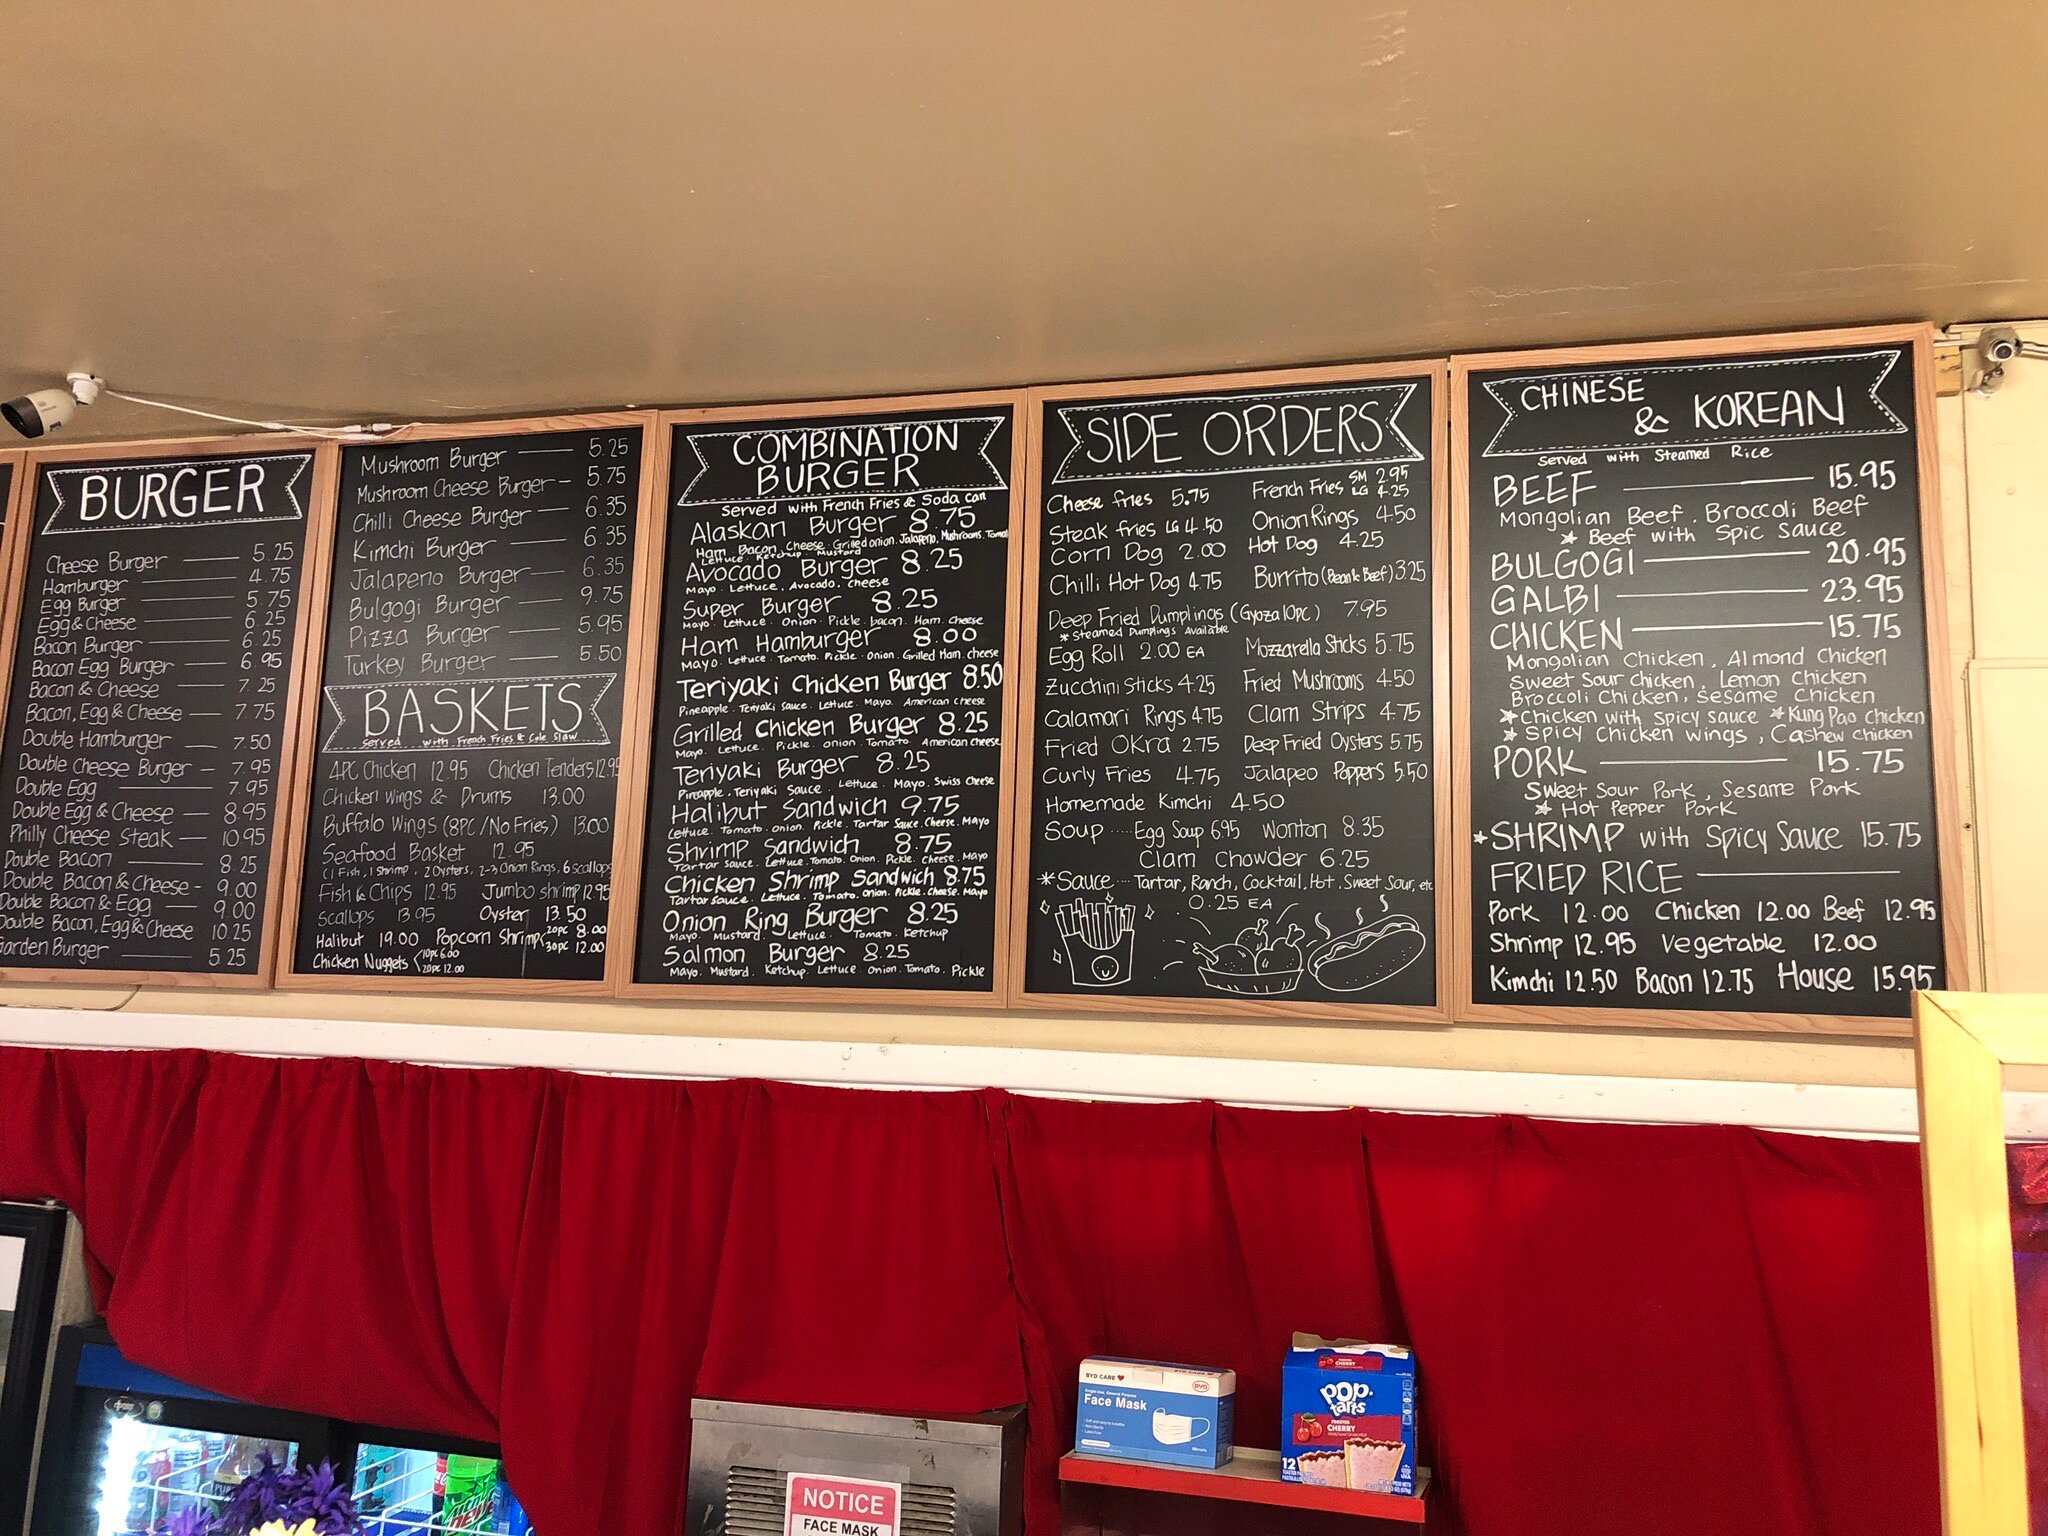 BURGER
Cheese Burger 5.25
Hamburger 4.75
Egg Burger 5.75
Egg & Cheese 6.25
Bacon Burger 6.25
Bacon Egg Burger 6.95
Bacon & Cheese 7.25
Bacon, Egg & Cheese 7.75
Double Hamburger 7.50
Double Cheese Burger 7.95
Double Egg 7.95
Double Egg & Cheese 8.95
Philly Cheese Steak 10.95
Double Bacon 8.25
Double Bacon & Cheese 9.00
Double Bacon & Egg 9.00
Double Bacon, Egg & Cheese 10.25
Garden Burger 5.25
Mushroom Burger 5.25
Mushroom Cheese Burger 5.75
Chilli Cheese Burger 6.35
Kimchi Burger 6.35
Jalapeno Burger 6.35
Bulgogi Burger 9.75
Pizza Burger 5.95
Turkey Burger 5.50
BASKETS
Served with French Fries & Cole Slaw
4PC Chicken 12.95 Chicken Tenders 12.95
Chicken Wings & Drums 13.00
Buffalo Wings (8PC/No Fries) 13.00
Seafood Basket 12.95
(1 Fish, 1 Shrimp, 2 Oysters, 2-3 Onion Rings, 6 Scallops
Fish & Chips 12.95 Jumbo Shrimp 12.95
Scallops 13.95 Oyster 13.50
Halibut 19.00 Popcorn Shrimp 20pc 8.00
30pc 12.00
Chicken Nuggets 10pc 6.00
20pc 12.00
COMBINATION
BURGER
Served with French Fries & Soda can
Alaskan Burger 8.75
Ham. Bacon. Cheese. Grilled onion. Jalapeno. Mushrooms. Tomato
Lettuce. Ketchup. Mustard
Avocado Burger 8.25
Mayo. Lettuce. Avocado. cheese
Super Burger 8.25
Mayo. Lettuce. Onion. Pickle. bacon. Ham. cheese
Ham Hamburger 8.00
Mayo. Lettuce. Tomato. Pickle. Onion. Grilled Ham. cheese
Teriyaki Chicken Burger 8.50
Pineapple. Teriyaki Sauce. Lettuce. Mayo. American cheese
Grilled Chicken Burger 8.25
Mayo. Lettuce. Pickle. Onion. Tomato. American cheese
Teriyaki Burger 8.25
Pineapple. Teriyaki Sauce. Lettuce. Mayo. Swiss Cheese
Halibut Sandwich 9.75
Lettuce. Tomato. Onion. Pickle. Tartar Sauce. Cheese. Mayo
Shrimp Sandwich 8.75
Tartar Sauce. Lettuce. Tomato. Onion. Pickle. Cheese. Mayo
Chicken Shrimp Sandwich 8.75
Tartar Sauce. Lettuce. Tomato. Onion. Pickle. Cheese. Mayo
Onion Ring Burger 8.25
Mayo. Mustard. Lettuce. Tomato. Ketchup
Salmon Burger 8.25
Mayo. Mustard. Ketchup. Lettuce. Onion. Tomato. Pickle
SIDE ORDERS
Cheese fries 5.75 French Fries SM 2.95
LG 4.25
Steak fries LG 4.50 Onion Rings 4.50
Corn Dog 2.00 Hot Dog 4.25
Chilli Hot Dog 4.75 Burrito (Bean & Beef) 3.25
Deep Fried Dumplings (Gyoza 10pc) 7.95
* Steamed Dumplings Available
Egg Roll 2.00 EA Mozzarella Sticks 5.75
Zucchini Sticks 4.25 Fried Mushrooms 4.50
Calamari Rings 4.75 Clam Strips 4.75
Fried OKra 2.75 Deep Fried Oysters 5.75
Curly Fries 4.75 Jalapeo Poppers 5.50
Homemade Kimchi 4.50
Soup ..... Egg Soup 6.95 Wonton 8.35
Clam Chowder 6.25
*Sauce .... Tartar, Ranch, Cocktail, Hot, Sweet Sour, etc
0.25 EA
CHINESE
& KOREAN
Served with Steamed Rice
BEEF 15.95
Mongolian Beef, Broccoli Beef
★ Beef with Spic Sauce
BULGOGI 20.95
GALBI 23.95
CHICKEN 15.75
Mongolian Chicken, Almond Chicken
Sweet Sour Chicken, Lemon Chicken
Broccoli Chicken, Sesame Chicken
★ Chicken with Spicy sauce ★ Kung Pao Chicken
★ Spicy Chicken Wings, Cashew Chicken
PORK 15.75
Sweet Sour Pork, Sesame Pork
★ Hot Pepper Pork
★SHRIMP with Spicy Sauce 15.75
FRIED RICE
Pork 12.00 Chicken 12.00 Beef 12.95
Shrimp 12.95 Vegetable 12.00
Kimchi 12.50 Bacon 12.75 House 15.95
BYD CARE
BYD
Face Mask
FROSTED
CHERRY
pop.
tarts
FROSTED
CHERRY
12
NOTICE
FACE MASK